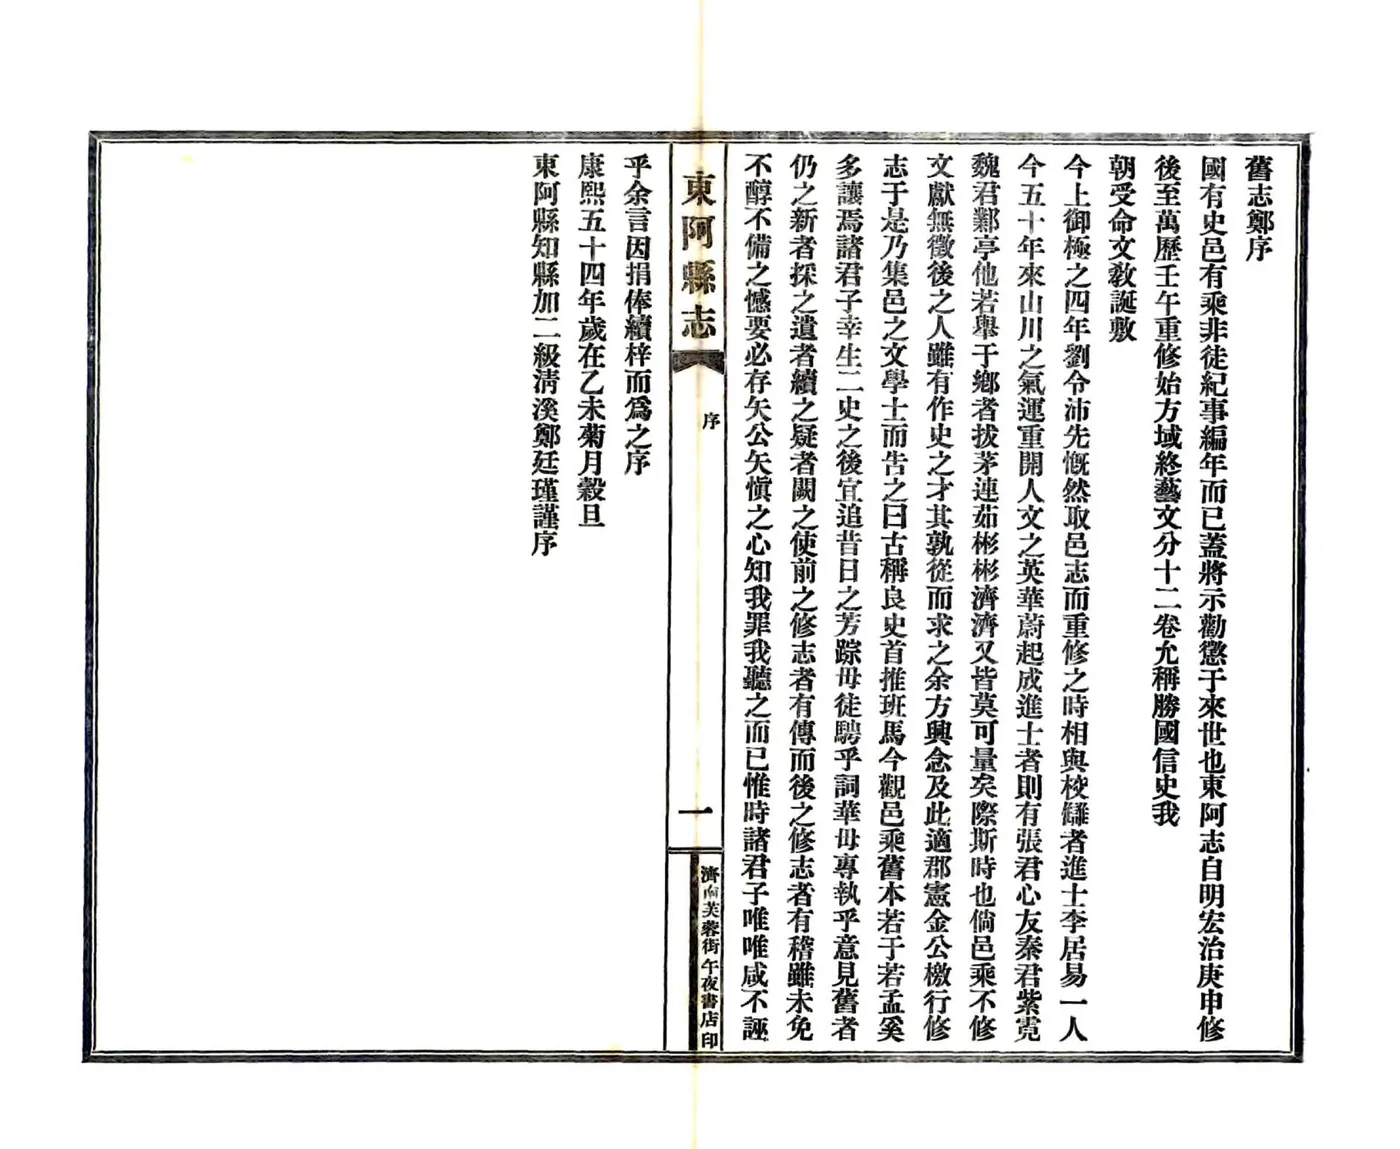 舊志鄭序
國有史邑有乘非徒紀事編年而已蓋將示勸懲于來世也東阿志自明宏治庚申修
後至萬歷壬午重修始方域終藝文分十二卷允稱勝國信史我
朝受命文敎誕敷
今上御極之四年劉令沛先慨然取邑志而重修之時相與校讎者進士李居易一人
今五十年來山川之氣運重開人文之英華蔚起成進士者則有張君心友秦君紫霓
魏君鄴亭他若舉于鄕者拔茅連茹彬彬濟濟又皆莫可量矣際斯時也倘邑乘不修
文獻無徵後之人雖有作史之才其孰從而求之余方興念及此適郡憲金公檄行修
志于是乃集邑之文學士而吿之曰古稱良史首推班馬今觀邑乘舊本若于若孟奚
多讓焉諸君子幸生二史之後宜追昔日之芳踪毋徒騁乎詞華毋專執乎意見舊者
仍之新者採之遺者續之疑者闕之使前之修志者有傳而後之修志者有稽雖未免
不醇不備之憾要必存矢公矢愼之心知我罪我聽之而已惟時諸君子唯唯咸不誣
東阿縣志
序
一
濟南芙蓉街午夜書店印
乎余言因捐俸續梓而爲之序
康熙五十四年歲在乙未菊月穀旦
東阿縣知縣加二級淸溪鄭廷瑾謹序